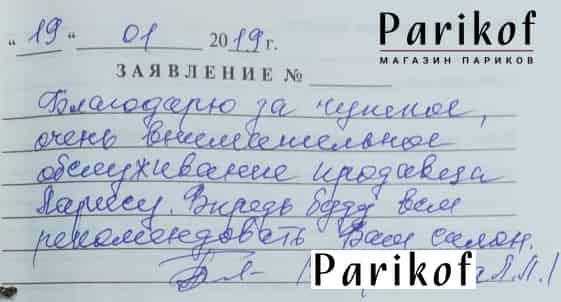 Parikof
МАГАЗИН ПАРИКОВ
"19" 01 2019 г.
ЗАЯВЛЕНИЕ №
Благодарю за чуткое,
очень внимательное
обслуживание продавца
Ларису. Впредь буду всем
рекомендовать Ваш салон.
Parikof
Л.П./